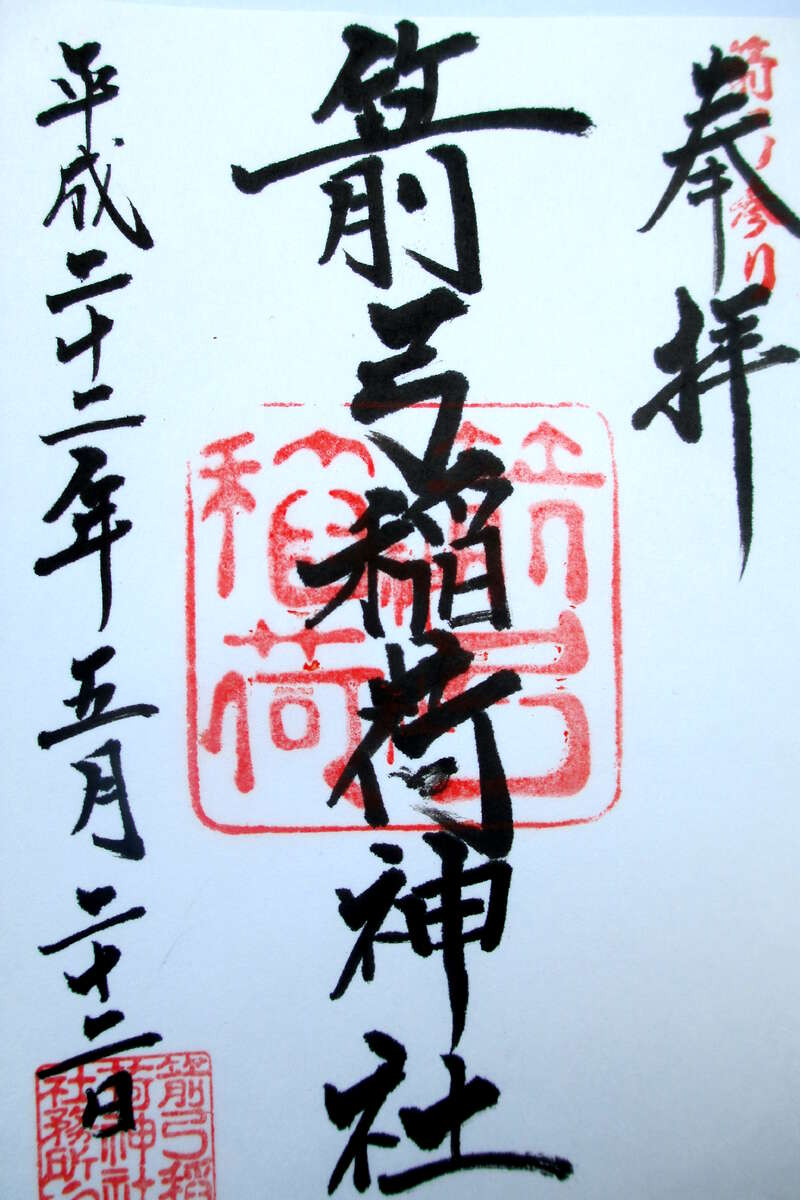 奉拝
箭弓稲荷神社
平成二十二年五月二十二日
箭弓
稲荷
箭弓稲
荷神社
社務所